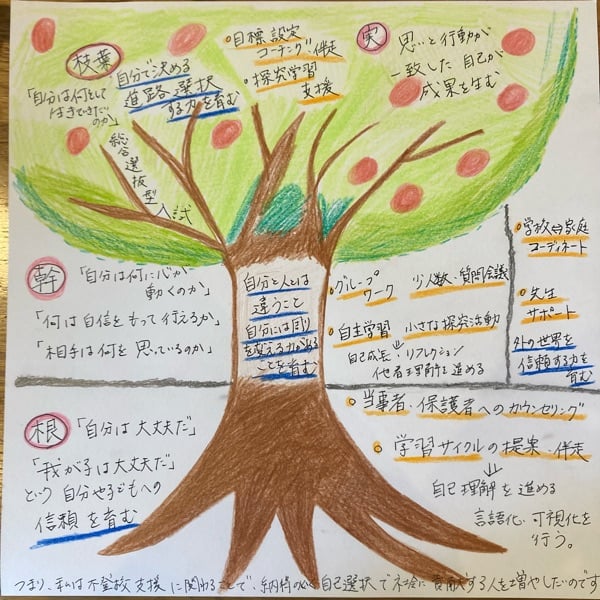 枝葉
「自分は何をして
生きていきたい
のか」
自分で決める
進路選択
する力を育む
総合選抜型入試
・目標設定
コーチング・伴走
・探究学習
支援
実
思いと行動が
一致した自己が
成果を生む
幹
「自分は何に心が
動くのか」
「何は自信をもって行えるか」
「相手は何を思っているのか」
自分と人とは
違うこと
自分には周り
を変える力がある
ことを育む
・グループ
ワーク
少人数・質問会議
・自主学習
小さな探究活動
自己成長・リフレクション
他者理解を進める
・学校⇔家庭
コーディネート
・先生
サポート
外の世界を
信頼する力を
育む
根
「自分は大丈夫だ」
「我が子は大丈夫だ」
という自分や子どもへの
信頼を育む
・当事者・保護者へのカウンセリング
・学習サイクルの提案・伴走
⇓
自己理解を進める
言語化・可視化を
行う。
つまり、私は不登校支援に関わることで、納得のいく自己選択で社会に貢献する人を増やしたいのです